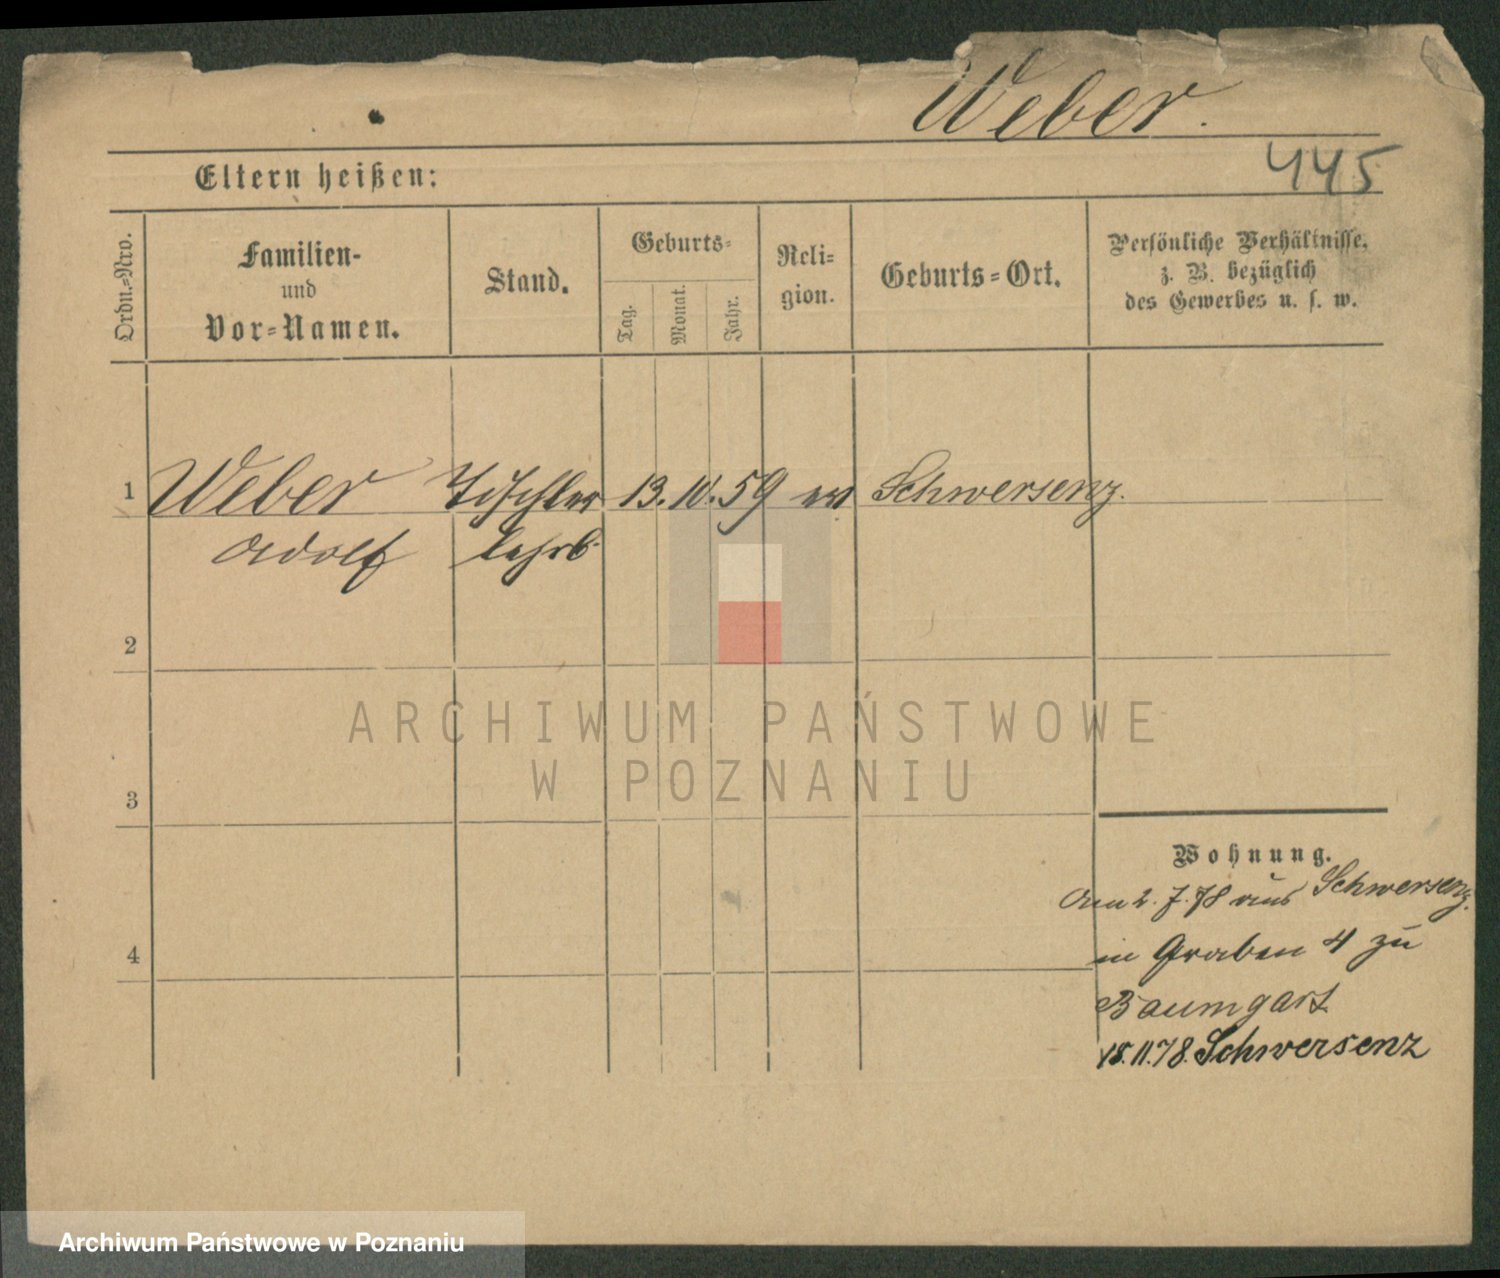 Weber.
445
Eltern heißen:
Ordn.-Nro.
Familien-
und
Vor-Namen.
Stand.
Geburts-
Tag.
Monat.
Jahr.
Reli-
gion.
Geburts-Ort.
Persönliche Verhältnisse,
z. B. bezüglich
des Gewerbes u. s. w.
1 Weber Tischler 13. 10. 59 ev Schwersenz.
Adolf lehrb.
2
ARCHIWUM PAŃSTWOWE
W POZNANIU
3
Wohnung.
Am 2. 7. 78 aus Schwersenz.
4
in Graben 4 zu
Baumgart
18.11.78. Schwersenz
Archiwum Państwowe w Poznaniu